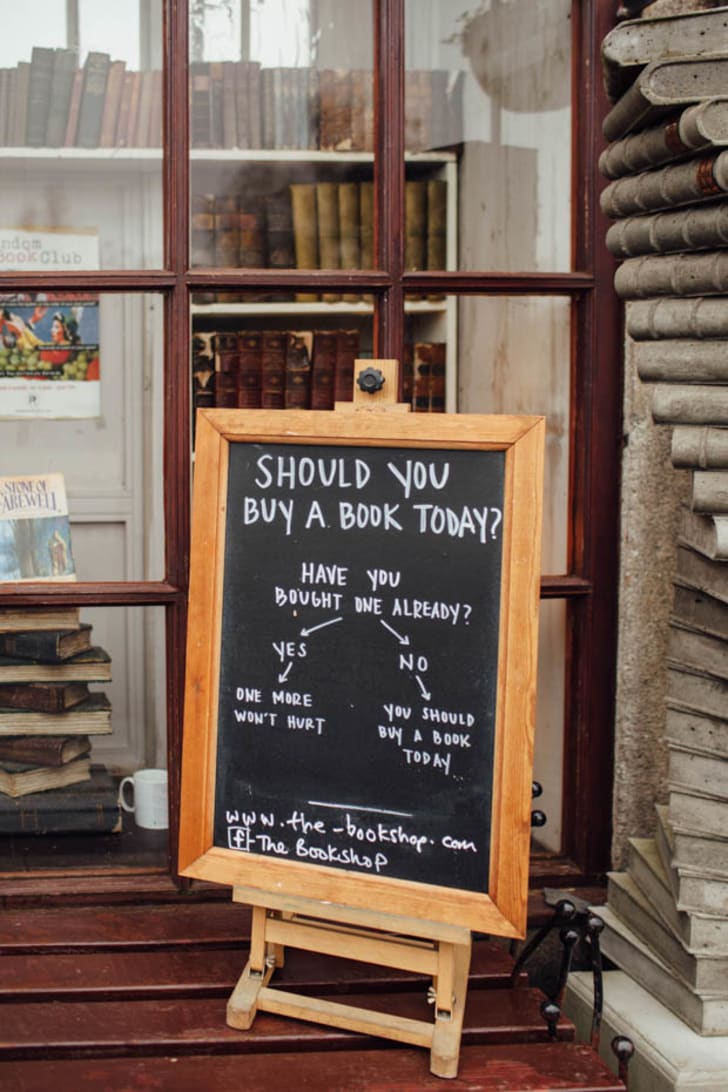 ndom
BookClub
STONE OF
AREWELL
SHOULD YOU
BUY A BOOK TODAY?
HAVE YOU
BOUGHT ONE ALREADY?
YES
NO
ONE MORE
WON'T HURT
YOU SHOULD
BUY A BOOK
TODAY
www.the-bookshop.com
f - The Bookshop